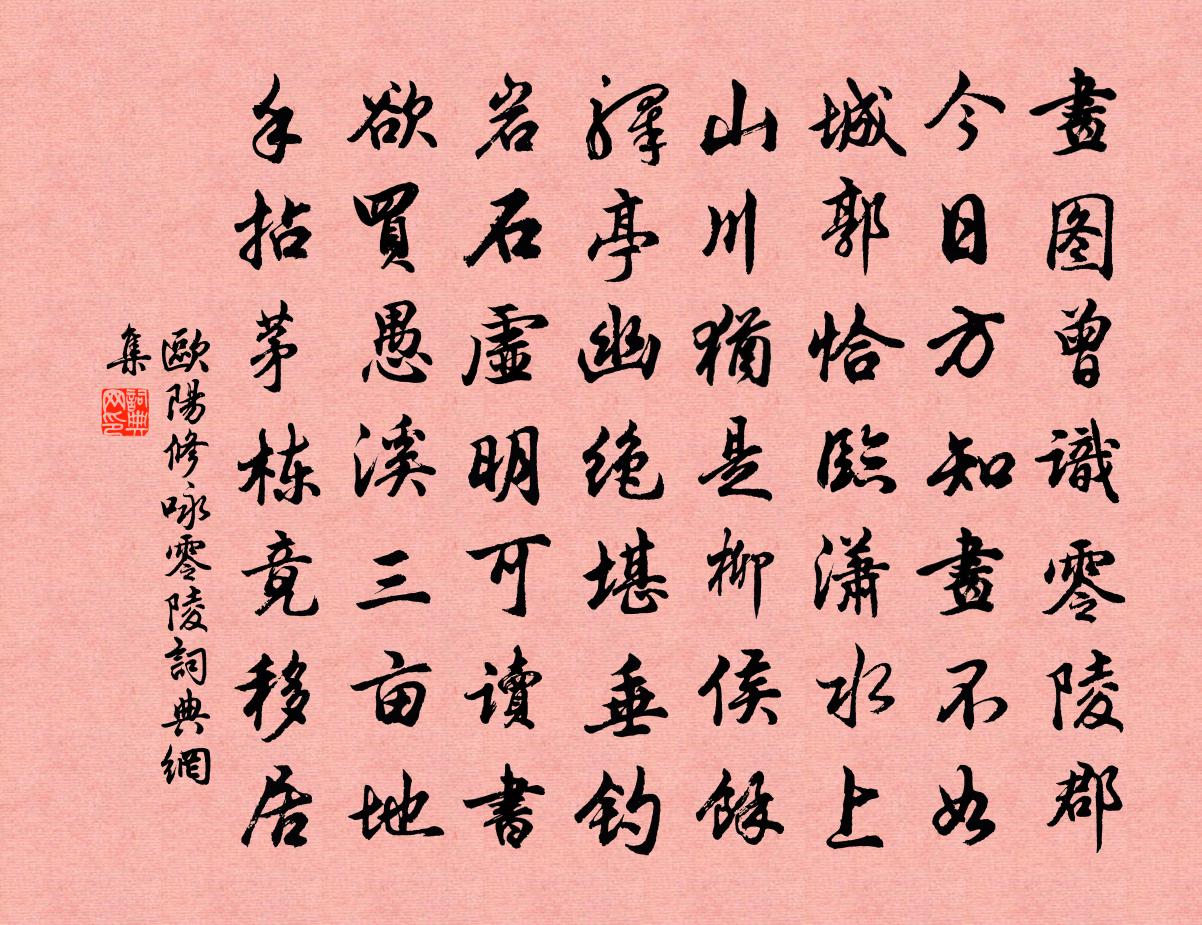 畫图曾識零陵郡
今日方知畫不如
城郭恰臨瀟水上
山川猶是柳侯餘
驛亭幽絶堪垂钓
岩石虛明可讀書
欲買愚溪三亩地
手拈茅栋竟移居
歐陽修咏零陵詞典網
集
詞典网印